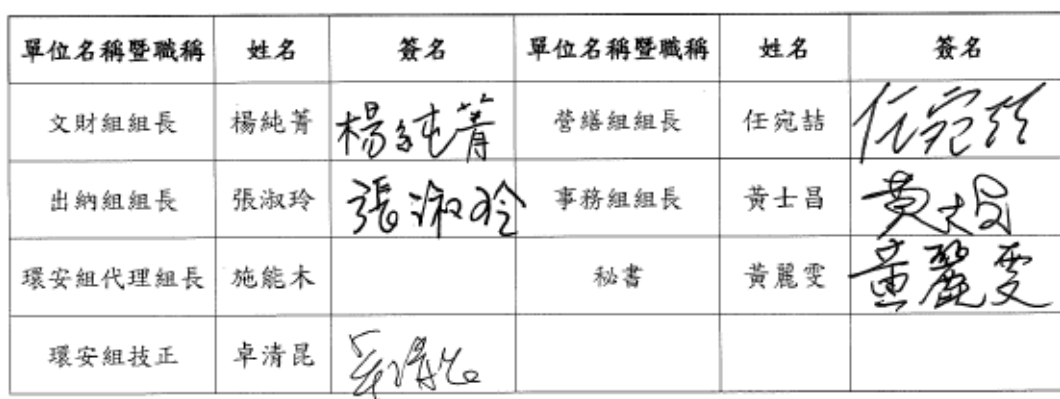 單位名稱暨職稱 姓名 簽名 單位名稱暨職稱 姓名 簽名
文財組組長 楊純菁 楊純菁 營繕組組長 任宛喆 任宛喆
出納組組長 張淑玲 張淑玲 事務組組長 黃士昌 黃士昌
環安組代理組長 施能木 秘書 黃麗雯 黃麗雯
環安組技正 卓清昆